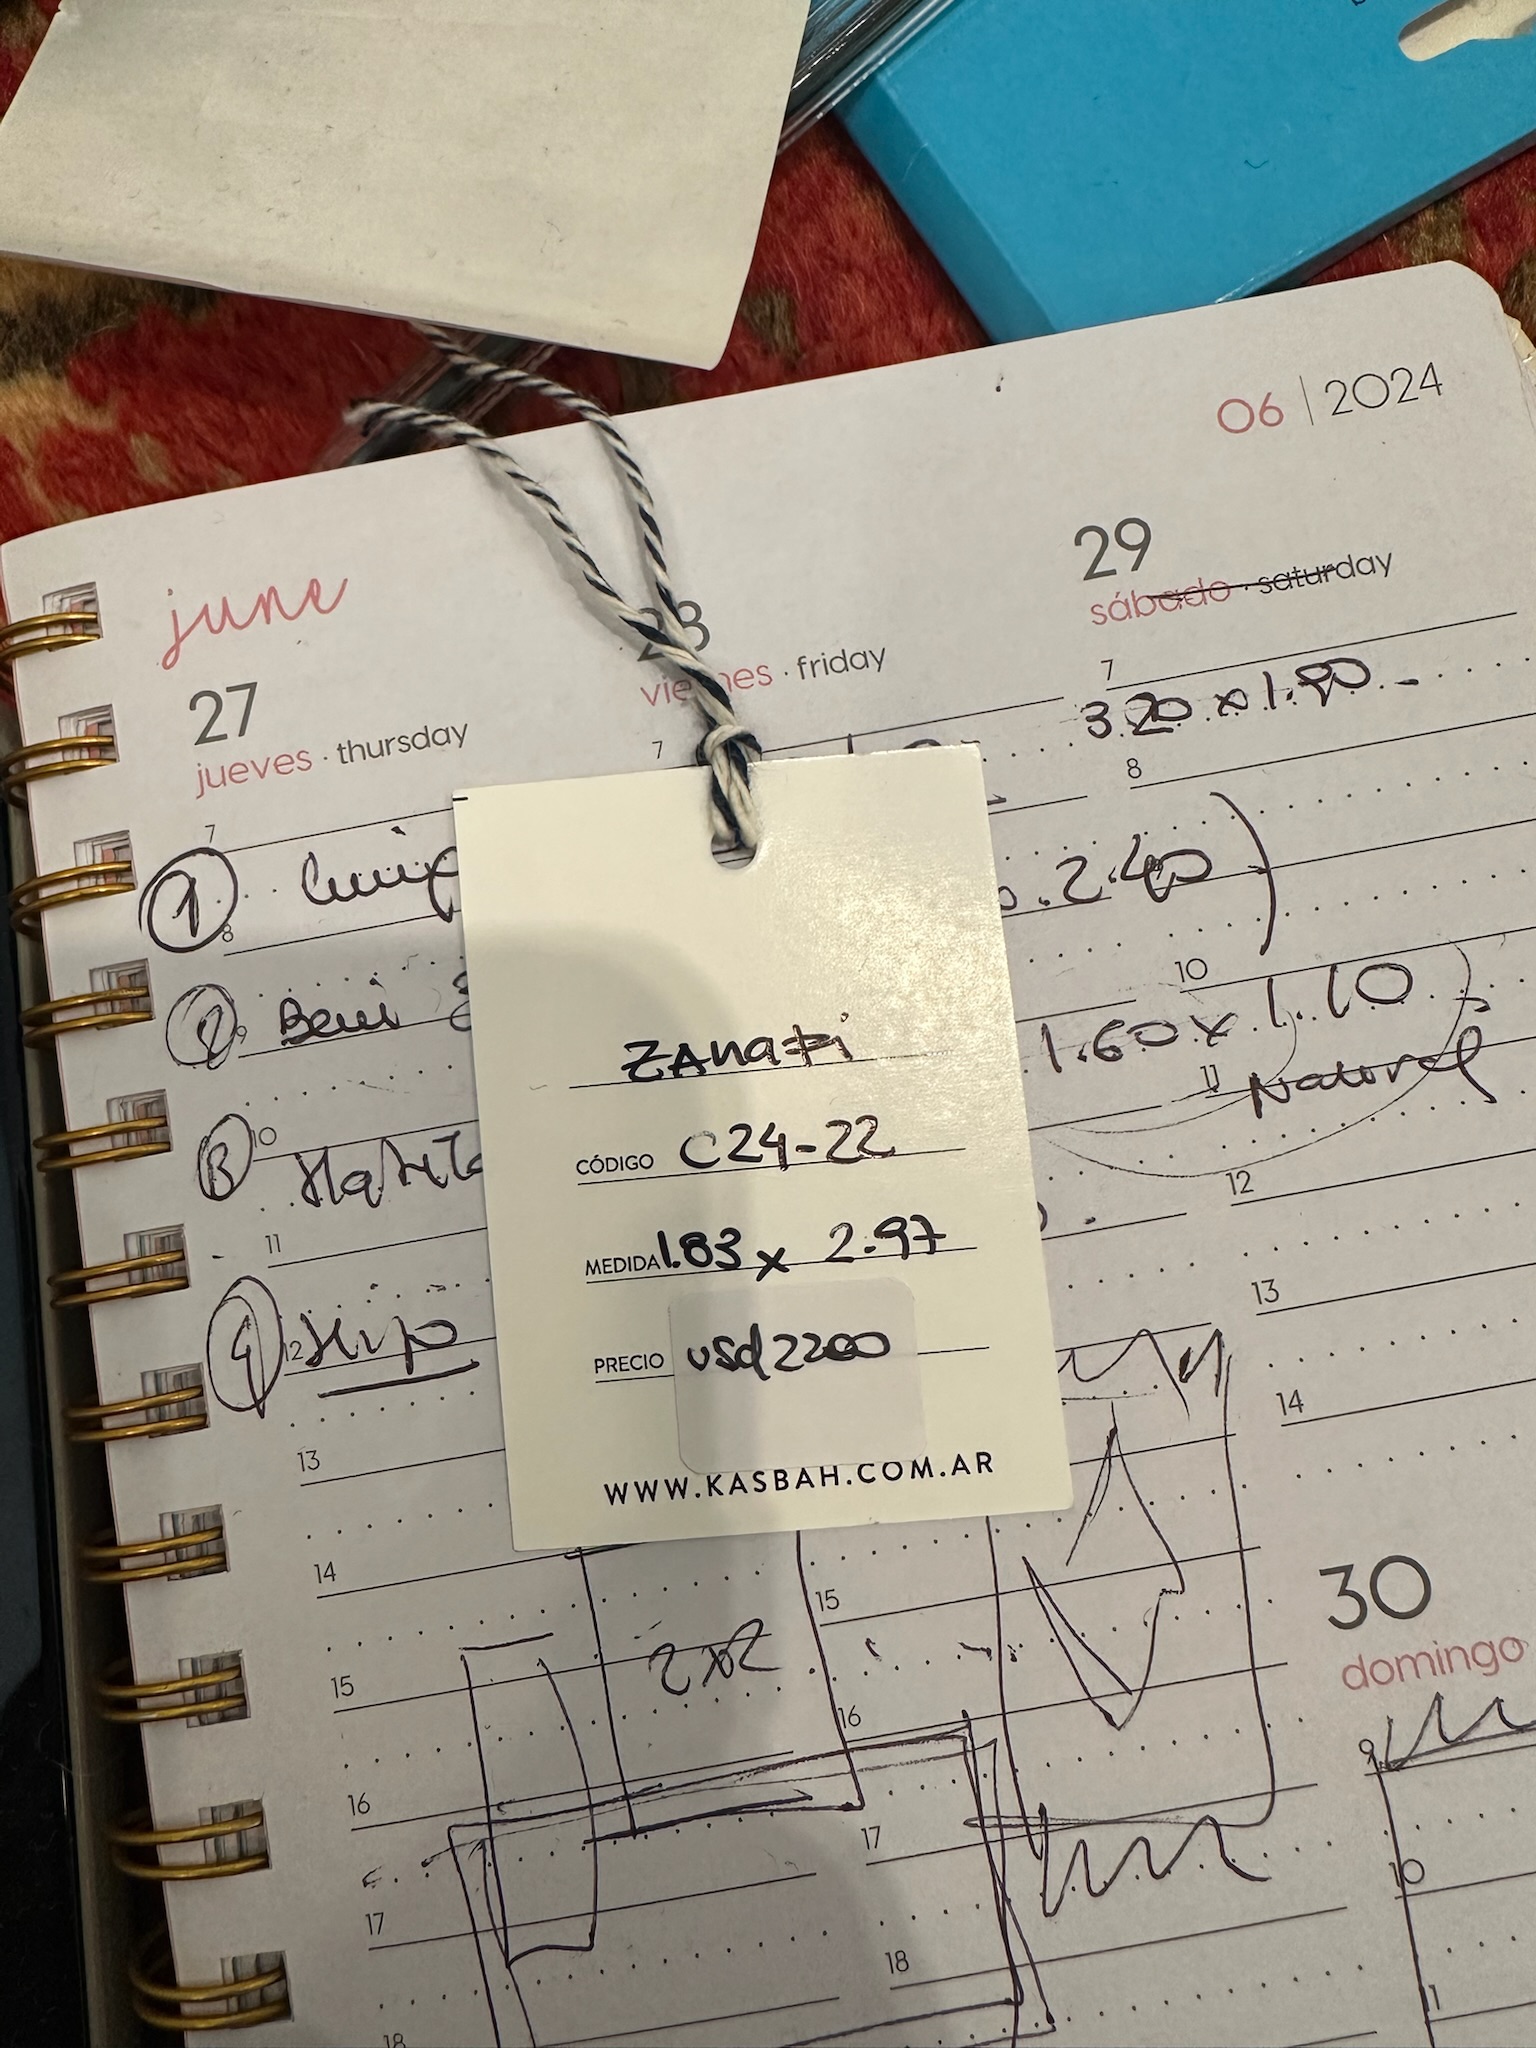 06 | 2024
june
27
jueves · thursday
28
viernes · friday
29
sábado · saturday
7
7
7
3.20 x 1.90
8
1
8
2.40
2
Beni
9
10
1.60 x 1.10
11
Natural
3
10
12
11
4
12
Hipo
13
13
14
14
15
2x2
15
16
16
17
17
18
18
30
domingo
9
10
11
ZANAFi
CÓDIGO C24-22
MEDIDA 1.83 x 2.97
PRECIO USd 2200
WWW.KASBAH.COM.AR